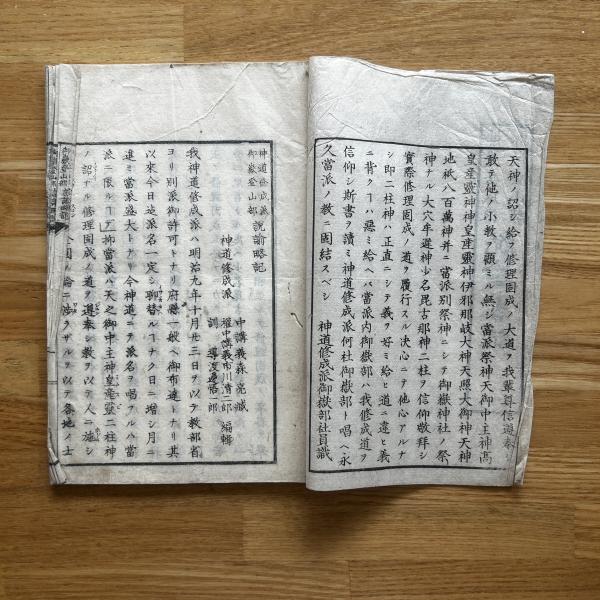 天神ノ認シ給フ修理固成ノ大道ヲ我輩尊信遵奉
敢テ他ノ小教ヲ顧ミル無シ當派祭神天御中主神高
皇産靈神神皇産靈神伊邪那岐大神天照大御神天神
地祇八百萬神并ニ當派別祭神ニシテ御嶽神社ノ祭
神ナル大穴牟遅神少名毘古那神二柱ヲ信仰敬拜シ
實際修理固成ノ道ヲ履行スル決心ニテ他心アルナ
シ即二柱神ハ正直ニシテ義ヲ好ミ給ヒ道ニ違ヒ義
ニ背クヿハ惡ミ給ヘハ當派内御嶽部ハ我修成道ヲ
信仰シ斯書ヲ讀ミ神道修成派何社御嶽部ト唱ヘ永
久當派ノ教ニ固結スベシ 神道修成派御嶽部社員識
神道修成派
御嶽登山部 説諭略記
神道修成派 中講義森亮藏
權中講義市川清二郎 編輯
訓導
我神道修成派ハ明治九年十月廿三日ヲ以テ教部省
ヨリ別派御許可トナリ府縣一般ヘ御布達トナリ其
以來今日迄派名一定シ聊替ルヿナク日ニ增シ月ニ
進ミ當派盛大トナリ今神道ニテ派名ヲ唱フルハ當
派ニ限ルヿ抑當派ハ天之御中主神皇産靈二柱神
ノ認ナル修理固成ノ道ヲ遵奉シ教ヲ以テ人ニ施シ
全國ル論ニ渉ラザルヲ以テ各地ノ士